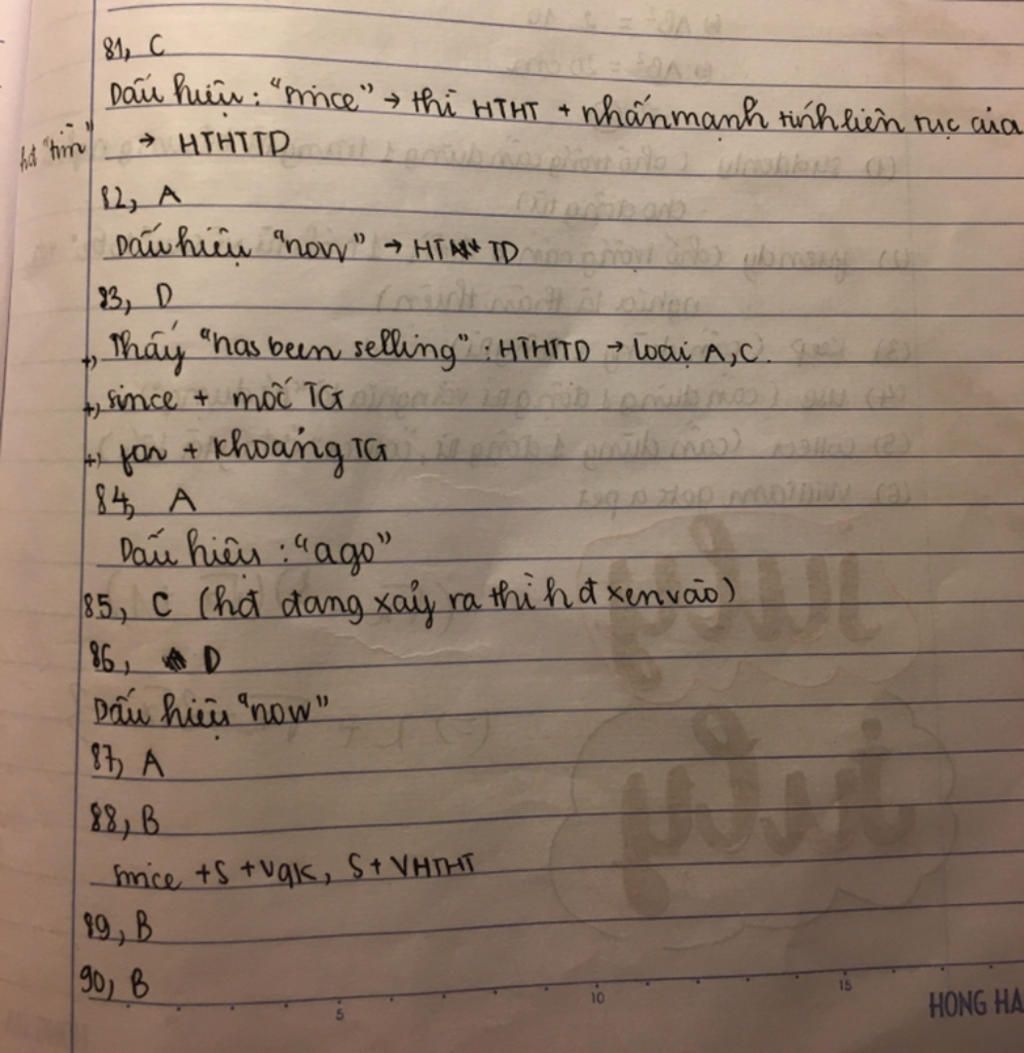 81, C
Dấu hiệu : "since" → thì HTHT + nhấn mạnh tính liên tục của
hđ "tìm"
→ HTHTTD
82, A
Dấu hiệu "now" → HT TD
83, D
+, Thấy "has been selling" : HTHTTD → loại A, C.
+, since + mốc TG
+, for + khoảng TG
84, A
Dấu hiệu : "ago"
85, C (hđ đang xảy ra thì hđ xen vào)
86, D
Dấu hiệu "now"
87, A
88, B
since + S + Vqk, S + VHTHT
89, B
90, B
5 10 15
HONG HA